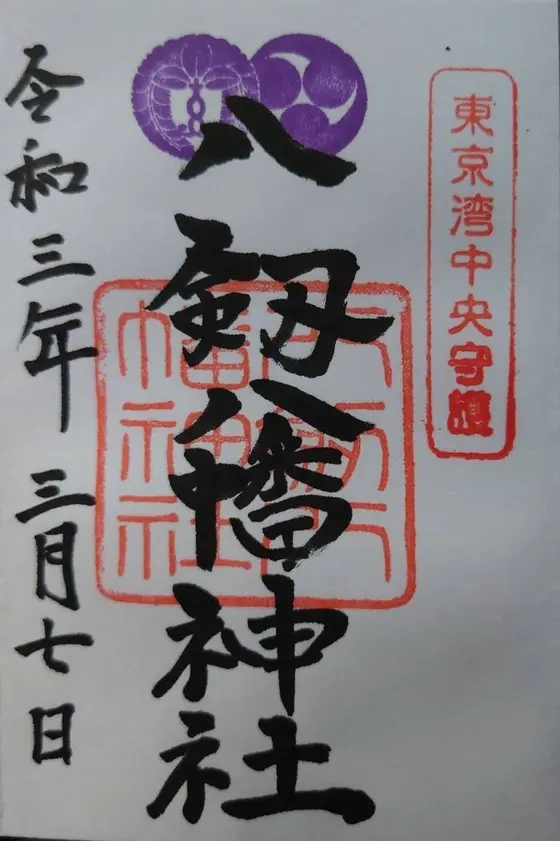 東京湾中央守護
八剱八幡神社
幡神社
令和三年三月七日